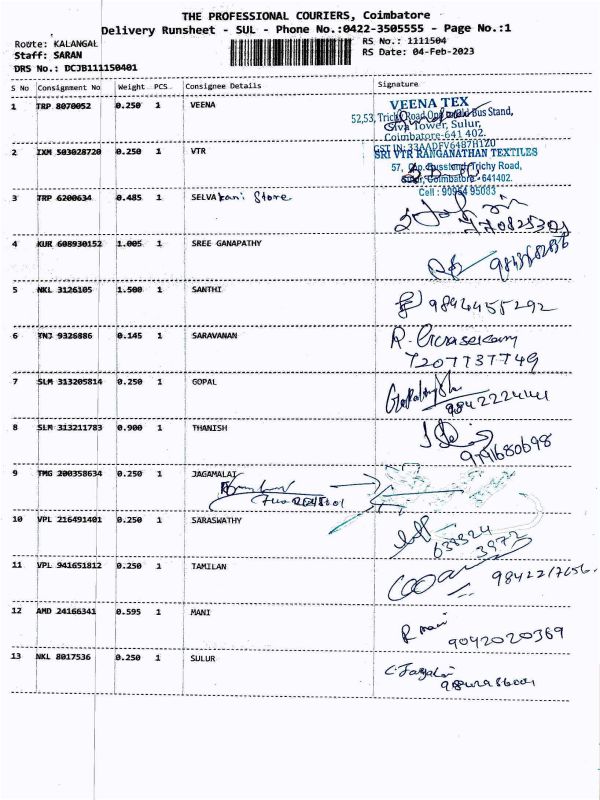 THE PROFESSIONAL COURIERS, Coimbatore
Delivery Runsheet - SUL - Phone No.:0422-3505555 - Page No.:1
Route: KALANGAL
RS No.: 1111504
Staff: SARAN
RS Date: 04-Feb-2023
DRS No.: DCJB111150401
S No Consignment No Weight PCS Consignee Details Signature
1 TRP 8070052 0.250 1 VEENA
VEENA TEX
52,53, Trichy Road Opp. Bus Stand,
Siva Tower, Sulur,
Coimbatore-641 402.
GST IN: 33AADFV6487H1Z0
2 IXM 503028720 0.250 1 VTR
SRI VTR RANGANATHAN TEXTILES
57, Opp. Busstand, Trichy Road,
Sulur, Coimbatore - 641402.
Cell : 90954 95083
3 TRP 6200634 0.485 1 SELVA kani Store
4 KUR 608930152 1.005 1 SREE GANAPATHY
5 NKL 3126105 1.500 1 SANTHI
9894455292
6 TNJ 9326886 0.145 1 SARAVANAN
7207737749
7 SLM 313205814 0.250 1 GOPAL
8 SLM 313211783 0.900 1 THANISH
9791680698
9 TMG 200358634 0.250 1 JAGAMALAI
10 VPL 216491401 0.250 1 SARASWATHY
638324
3972
11 VPL 941651812 0.250 1 TAMILAN
12 AMD 24166341 0.595 1 MANI
R mani
9042020369
13 NKL 8017536 0.250 1 SULUR